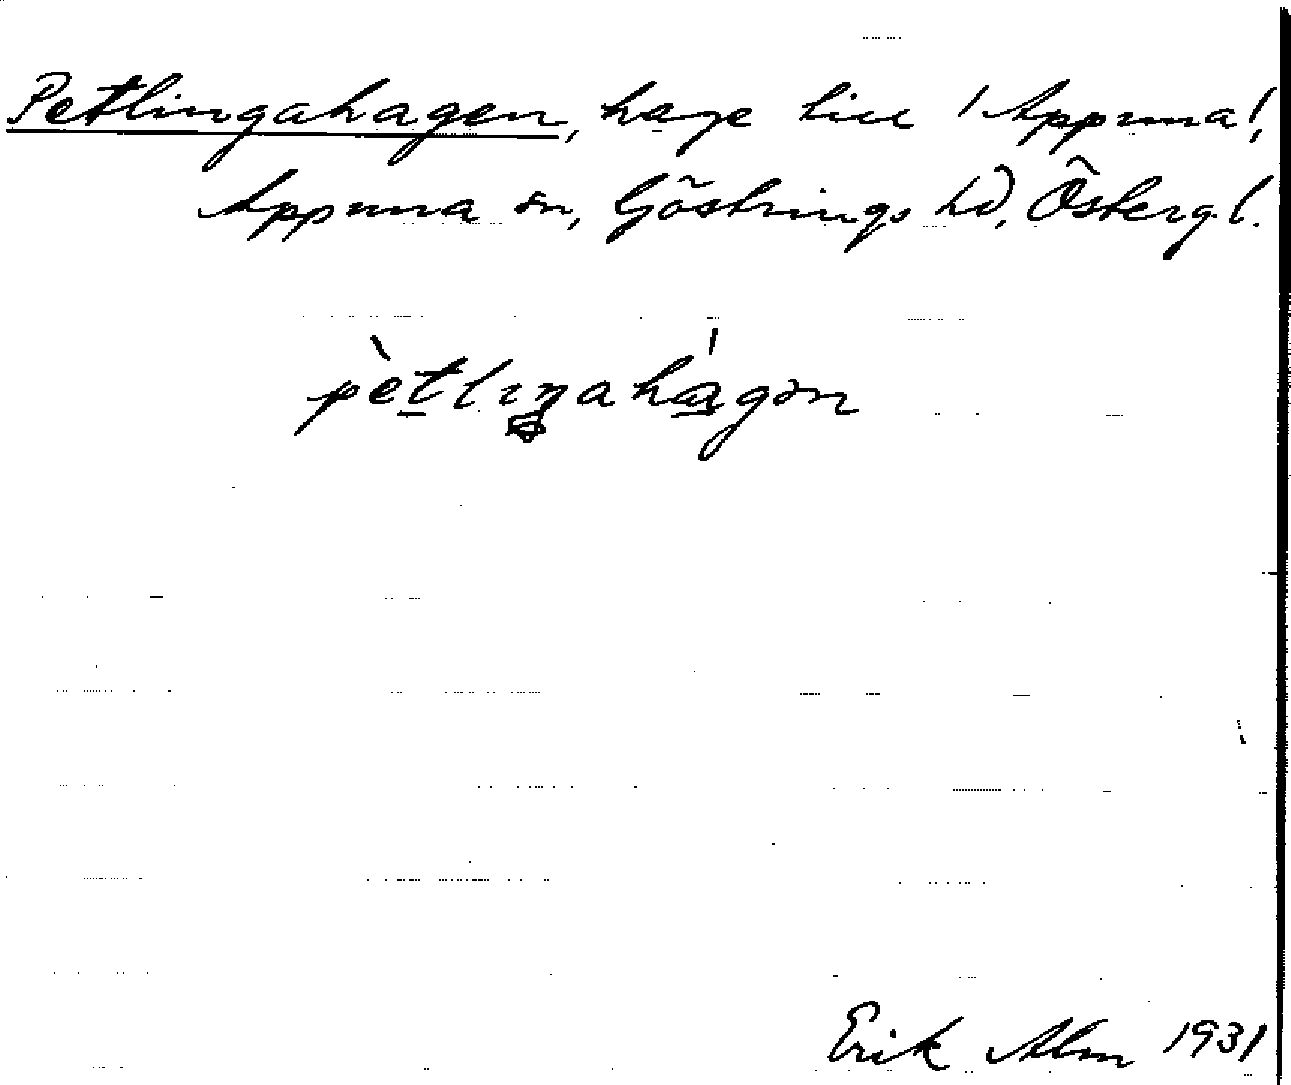 Petlingahagen, hage till 'Appuna',
Appuna sn, Göstrings hd, Östergl.
pètlıŋahágən
Erik Alm 1931